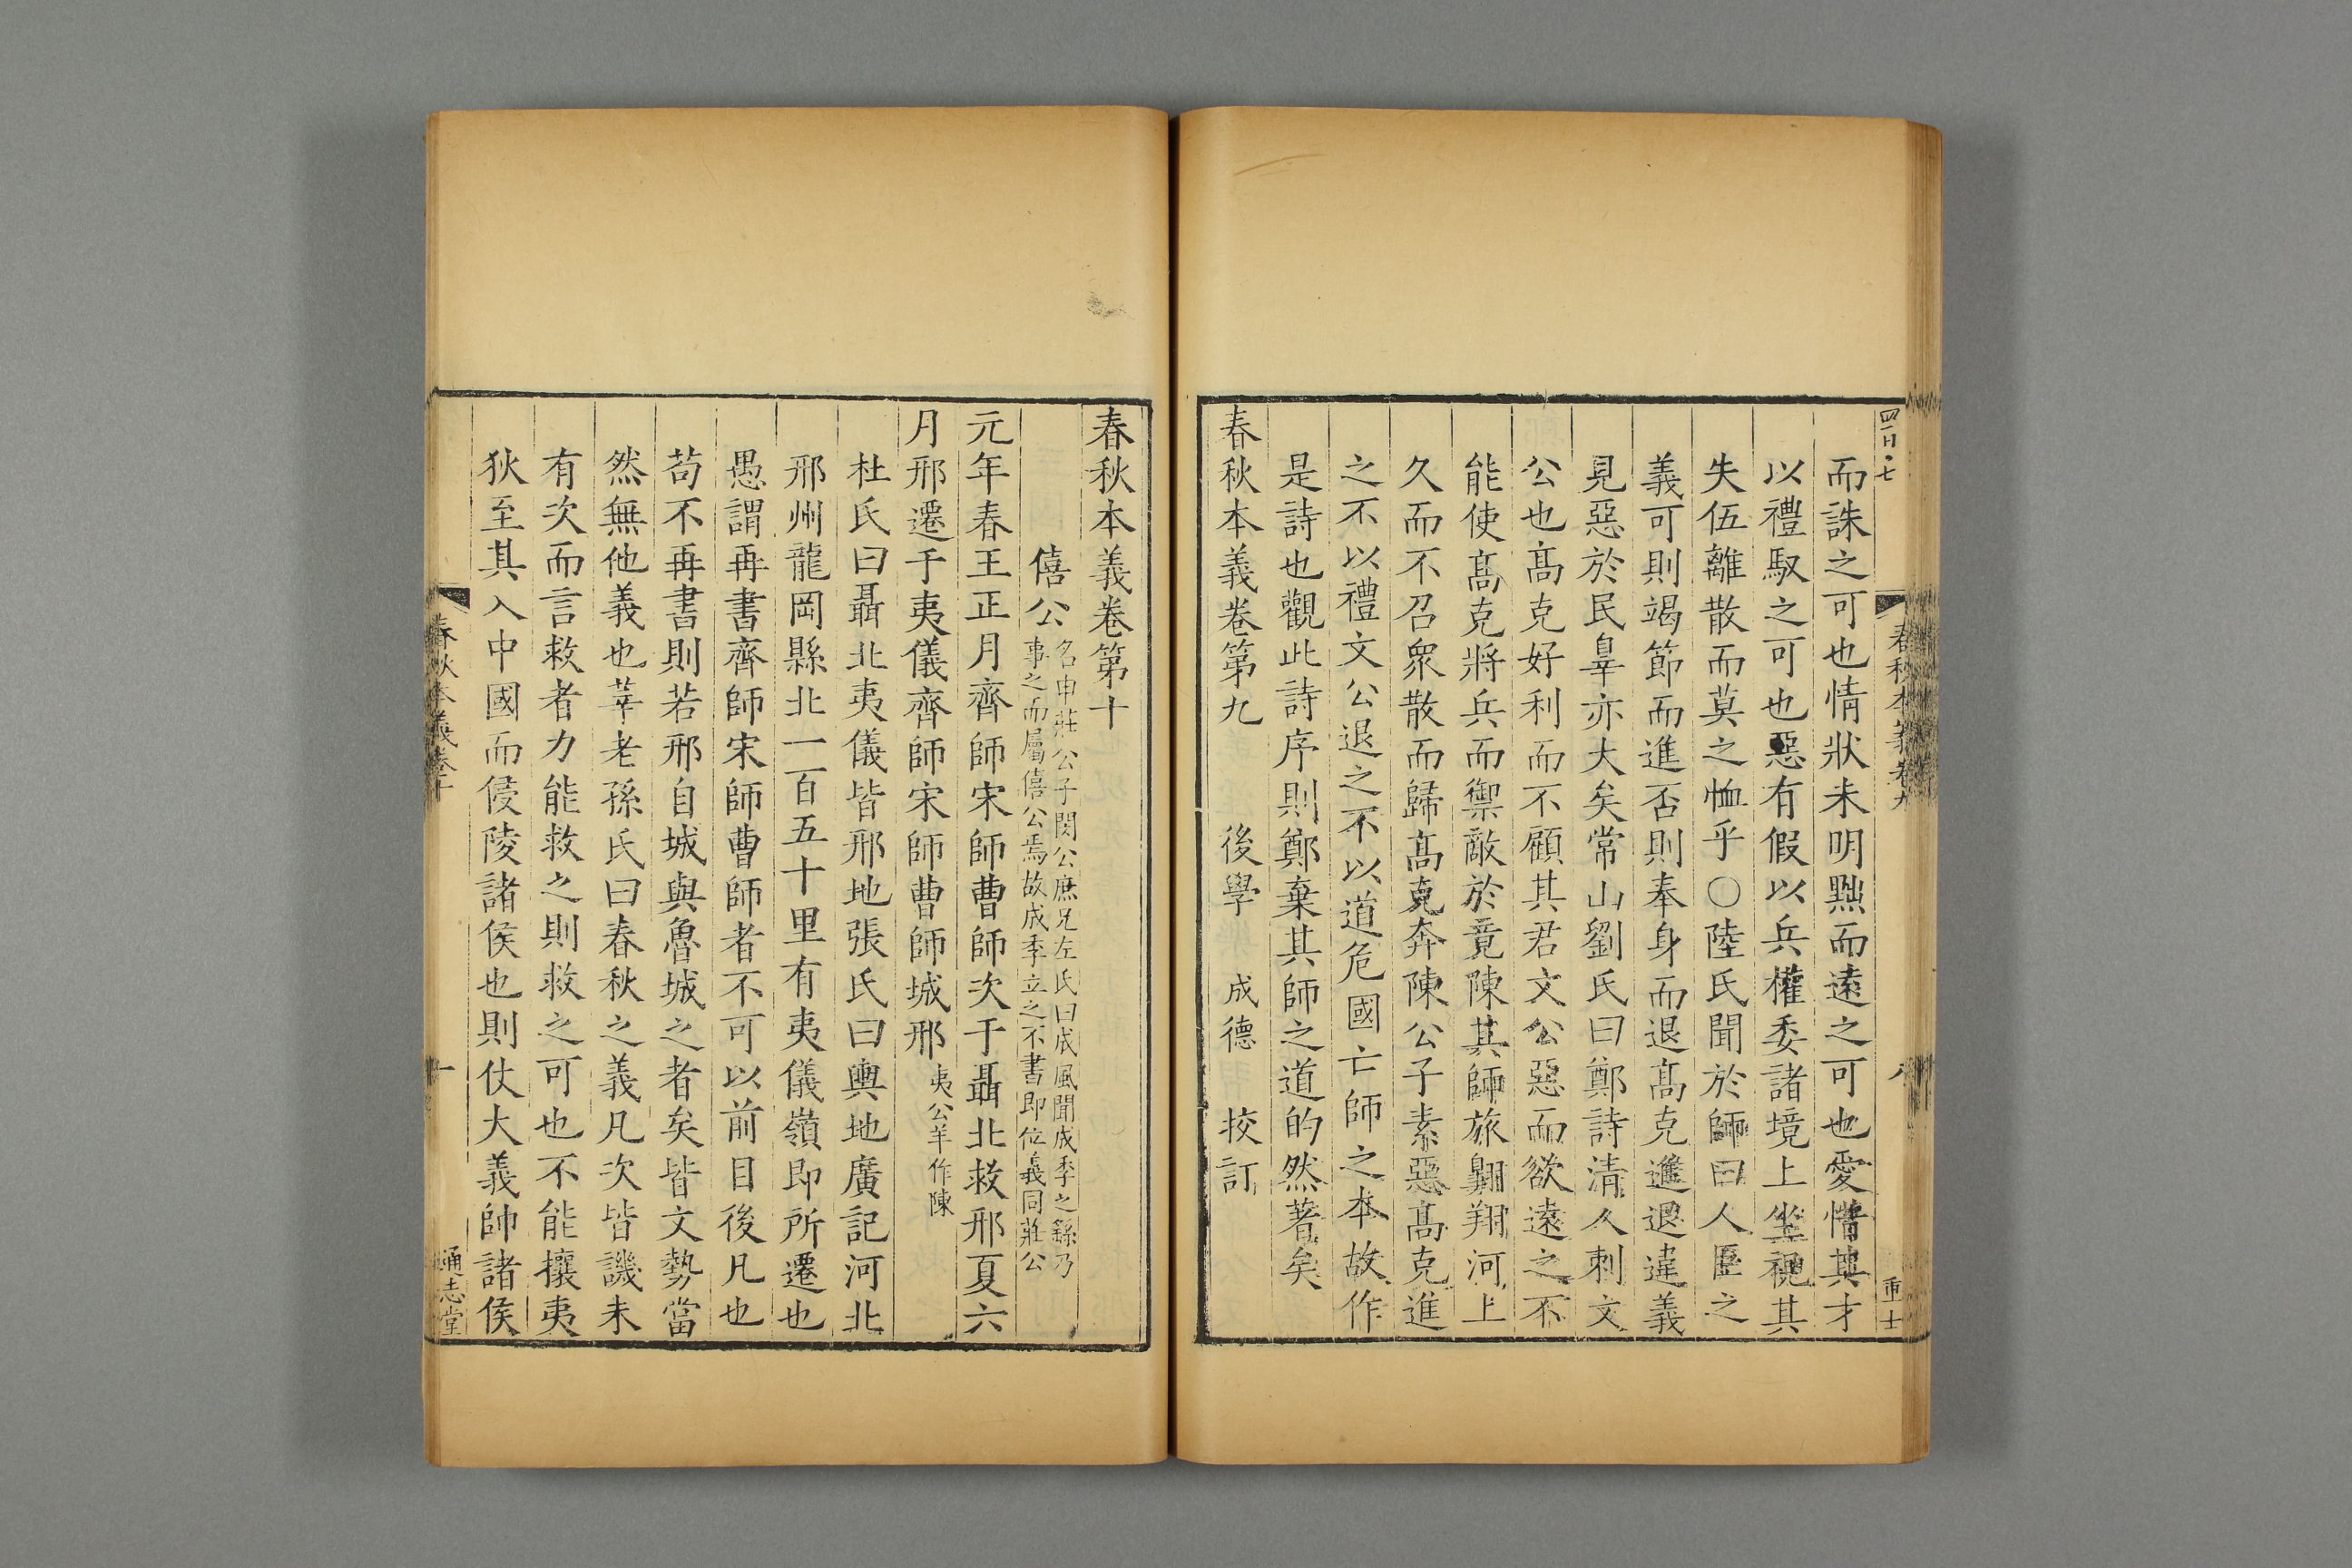 四百·七
春秋本義卷九
八
重士
而誅之可也情狀未明黜而遠之可也愛惜其才
以禮馭之可也惡有假以兵權委諸境上坐視其
失伍離散而莫之恤乎○陸氏聞於師曰人臣之
義可則竭節而進否則奉身而退髙克進退違義
見惡於民辠亦大矣常山劉氏曰鄭詩清人刺文
公也髙克好利而不顧其君文公惡而欲遠之不
能使髙克將兵而禦敵於竟陳其師旅翺翔河上
久而不召衆散而歸髙克奔陳公子素惡髙克進
之不以禮文公退之不以道危國亡師之本故作
是詩也觀此詩序則鄭棄其師之道的然著矣
春秋本義卷第九 後學 成德 挍訂
春秋本義卷第十
僖公名申莊公子閔公庶兄左氏曰成風聞成季之繇乃
事之而屬僖公焉故成季立之不書即位義同莊公
元年春王正月齊師宋師曹師次于聶北救邢夏六
月邢遷于夷儀齊師宋師曹師城邢夷公羊作陳
杜氏曰聶北夷儀皆邢地張氏曰輿地廣記河北
邢州龍岡縣北一百五十里有夷儀嶺即所遷也
愚謂再書齊師宋師曹師者不可以前目後凡也
苟不再書則若邢自城與魯城之者矣皆文勢當
然無他義也莘老孫氏曰春秋之義凡次皆譏未
有次而言救者力能救之則救之可也不能攘夷
狄至其入中國而侵陵諸侯也則仗大義帥諸侯
春秋本義卷十
一
通志堂